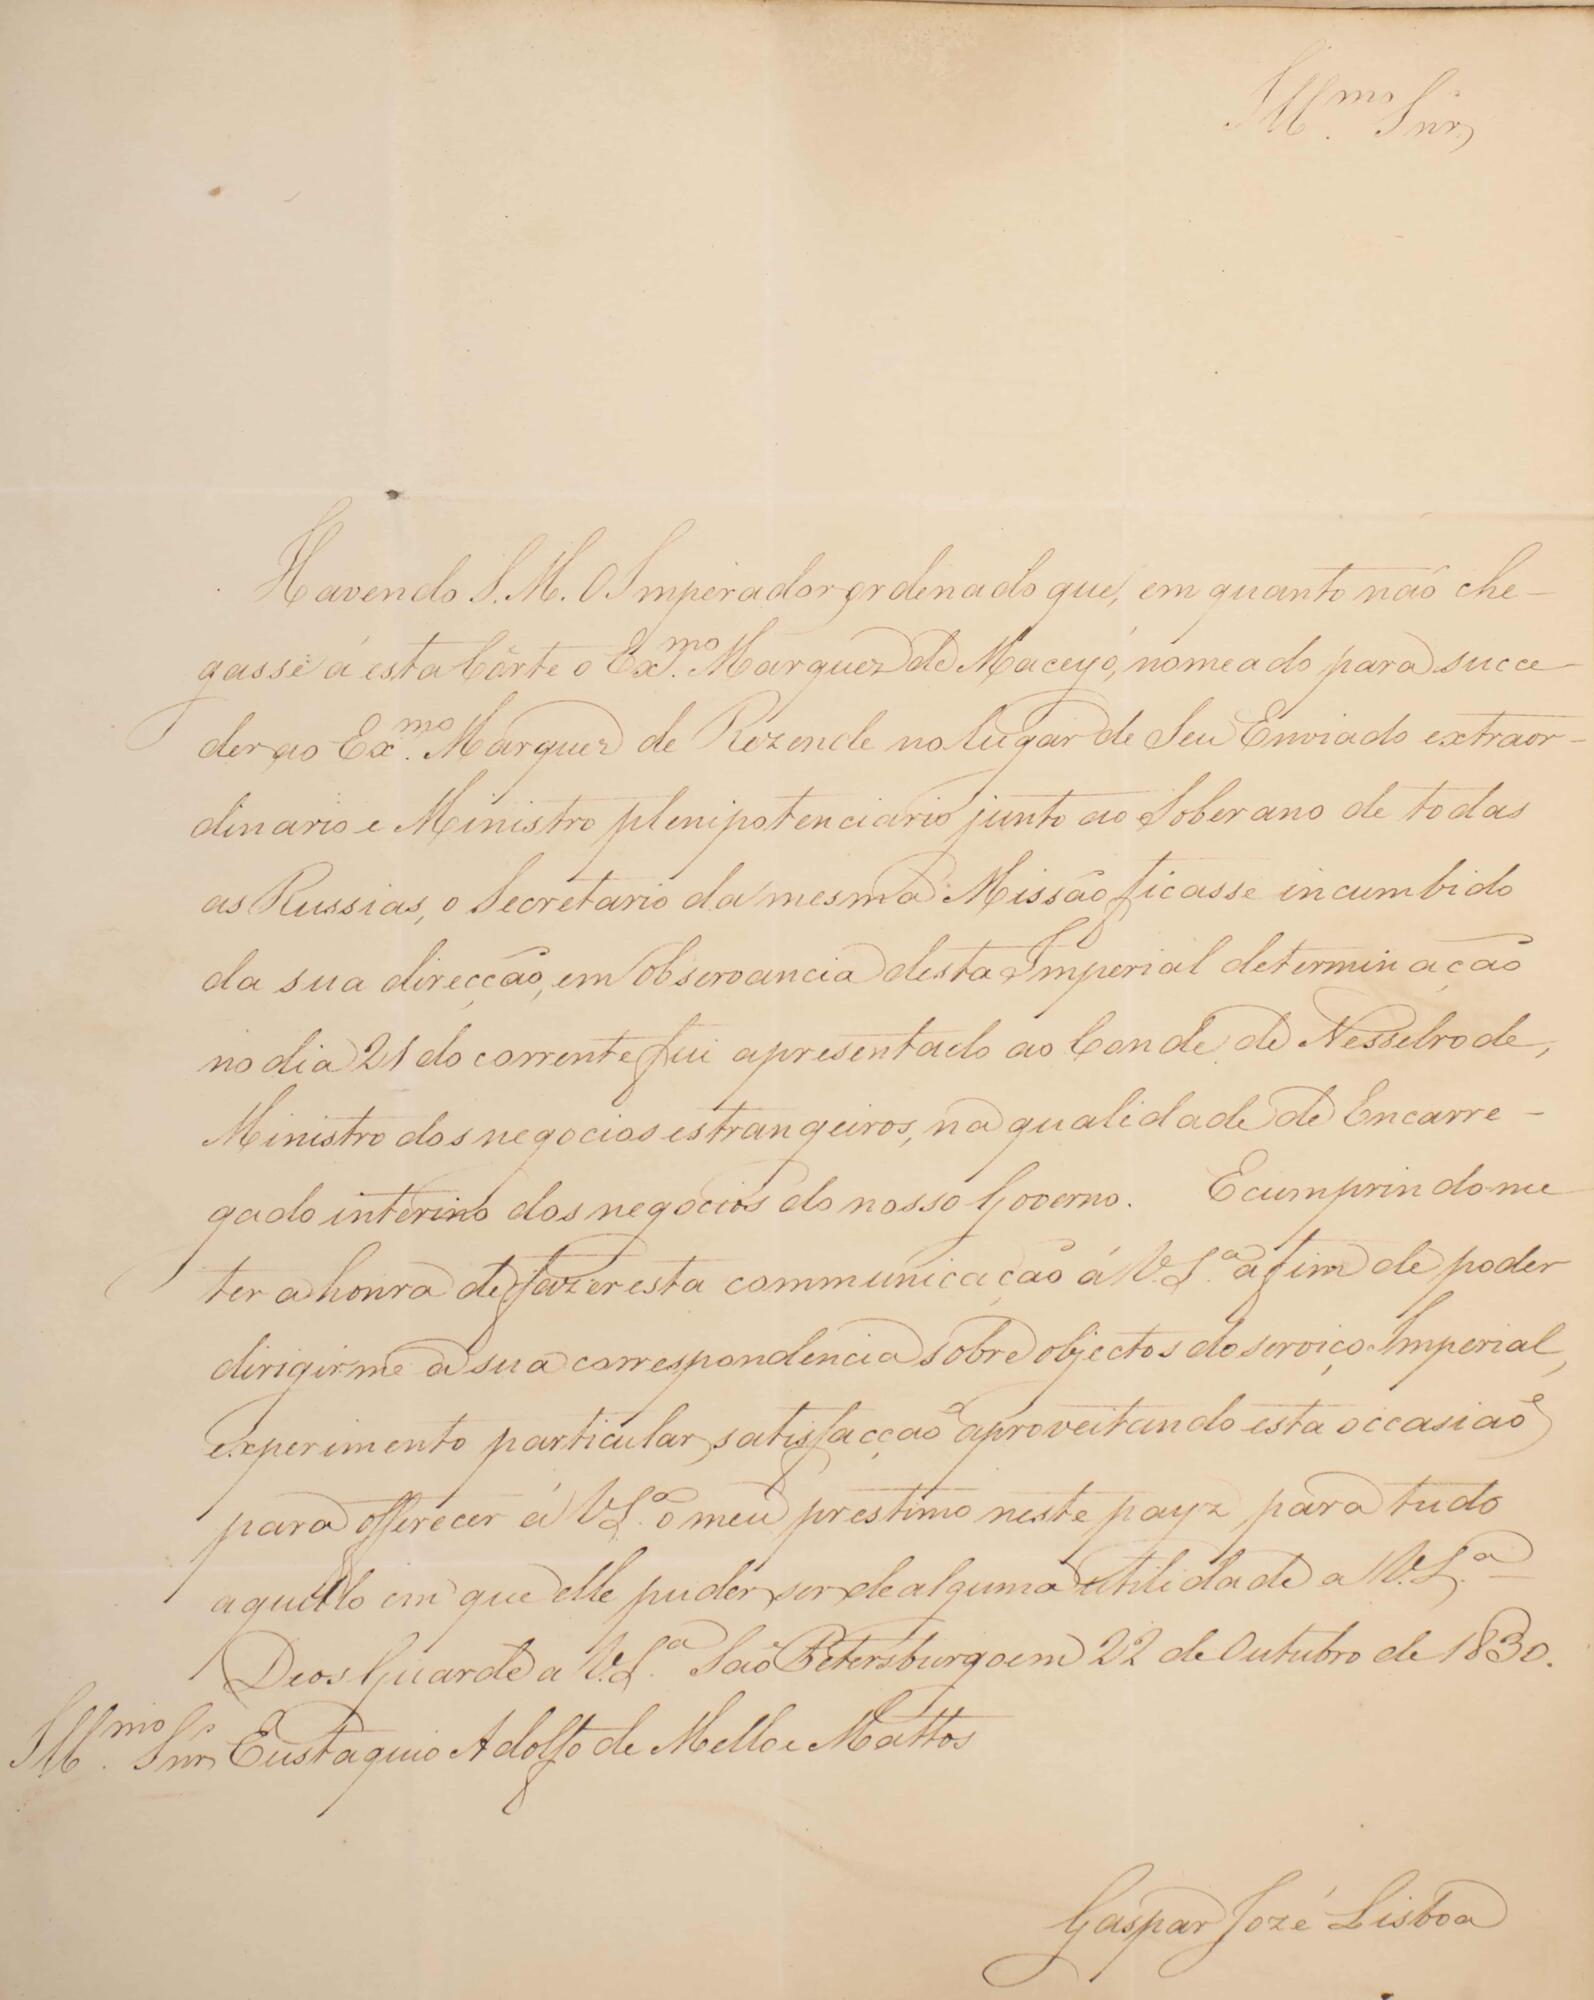 Ill.mo Snr.
Havendo S. M. O Imperador ordenado que, em quanto não che-
gasse á esta Côrte o Ex.mo Marquez de Maceyó, nomeado para succe-
der ao Ex.mo Marquez de Rezende no lugar de Seu Enviado extraor-
dinario e Ministro plenipotenciario junto ao Soberano de todas
as Russias, o Secretario da mesma Missão ficasse incumbido
da sua direcção, em observancia desta Imperial determinação
no dia 21 do corrente fui apresentado ao Conde de Nesselrode,
Ministro dos negocios estrangeiros, na qualidade de Encarre-
gado interino dos negocios do nosso Governo. E cumprindo me
ter a honra de fazer esta communicação á V.S.a a fim de poder
dirigirme a sua correspondencia sobre objectos do serviço Imperial,
experimento particular satisfacção aproveitando esta occasião
para offerecer á V.S.a o meu prestimo neste payz para tudo
aquillo em que elle puder ser de alguma utilidade a V.S.a
Deos Guarde a V.S.a São Petersburgo em 22 de Outubro de 1830.
Ill.mo Snr. Eustaquio Adolfo de Mello e Mattos
Gaspar José Lisboa